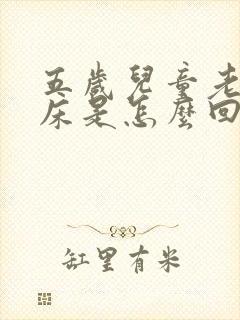 五歲兒童老
床是怎麼回
缸里有米